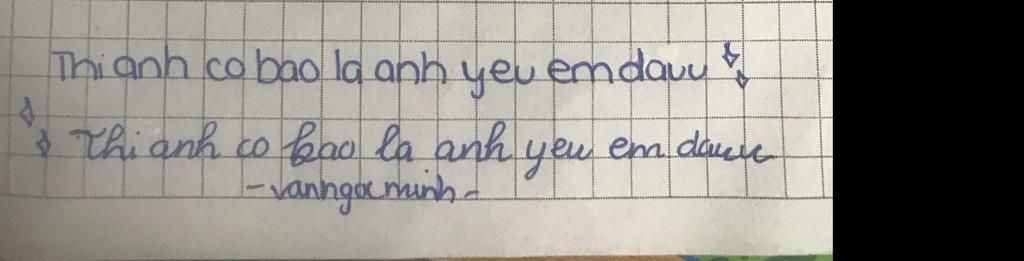 Thi anh co bao la anh yeu em dauu
Thi anh co bao la anh yeu em dauu
- vanngocminh -